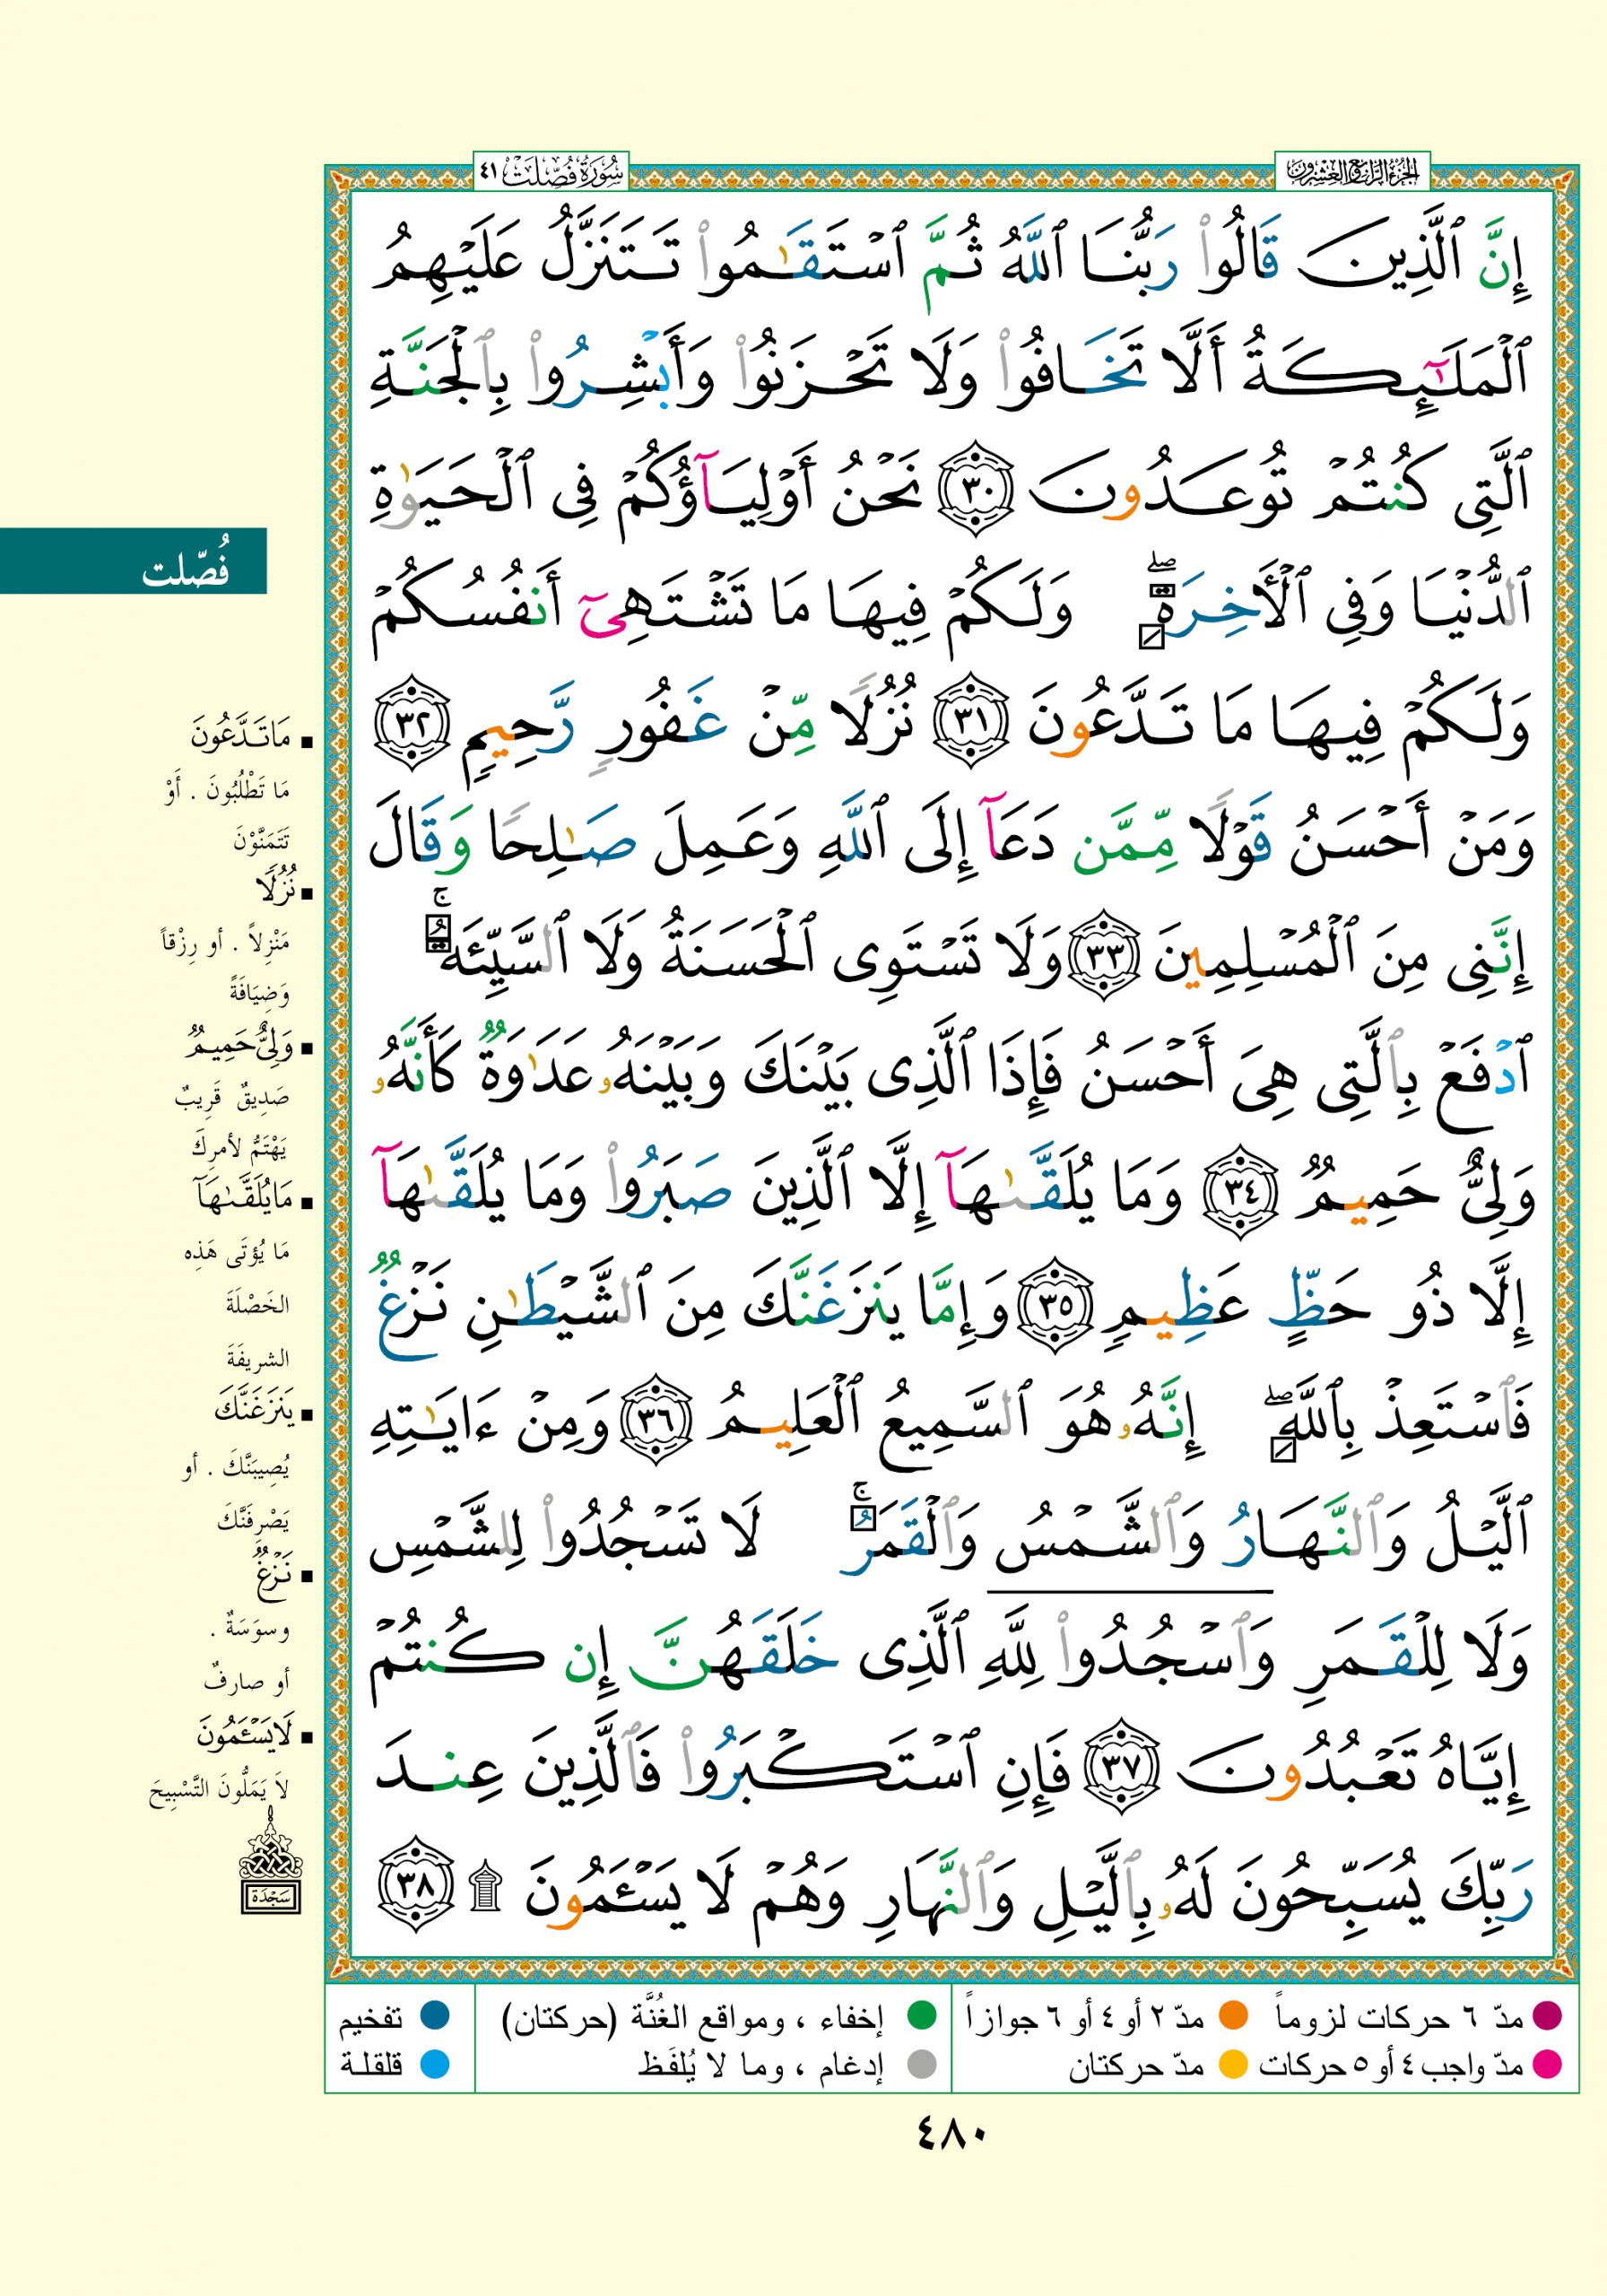 الجزء الرابع والعشرون
سُورَةُ فُصِّلَتْ ٤١
إِنَّ ٱلَّذِينَ قَالُوا۟ رَبُّنَا ٱللَّهُ ثُمَّ ٱسْتَقَـٰمُوا۟ تَتَنَزَّلُ عَلَيْهِمُ
ٱلْمَلَـٰٓئِكَةُ أَلَّا تَخَافُوا۟ وَلَا تَحْزَنُوا۟ وَأَبْشِرُوا۟ بِٱلْجَنَّةِ
ٱلَّتِى كُنتُمْ تُوعَدُونَ ﴿٣٠﴾ نَحْنُ أَوْلِيَآؤُكُمْ فِى ٱلْحَيَوٰةِ
ٱلدُّنْيَا وَفِى ٱلْأَخِرَةِ ۖ وَلَكُمْ فِيهَا مَا تَشْتَهِىٓ أَنفُسُكُمْ
وَلَكُمْ فِيهَا مَا تَدَّعُونَ ﴿٣١﴾ نُزُلًا مِّنْ غَفُورٍ رَّحِيمٍ ﴿٣٢﴾
وَمَنْ أَحْسَنُ قَوْلًا مِّمَّن دَعَآ إِلَى ٱللَّهِ وَعَمِلَ صَـٰلِحًا وَقَالَ
إِنَّنِى مِنَ ٱلْمُسْلِمِينَ ﴿٣٣﴾ وَلَا تَسْتَوِى ٱلْحَسَنَةُ وَلَا ٱلسَّيِّئَةُ ۚ
ٱدْفَعْ بِٱلَّتِى هِىَ أَحْسَنُ فَإِذَا ٱلَّذِى بَيْنَكَ وَبَيْنَهُۥ عَدَٰوَةٌ كَأَنَّهُۥ
وَلِىٌّ حَمِيمٌ ﴿٣٤﴾ وَمَا يُلَقَّىٰهَآ إِلَّا ٱلَّذِينَ صَبَرُوا۟ وَمَا يُلَقَّىٰهَآ
إِلَّا ذُو حَظٍّ عَظِيمٍ ﴿٣٥﴾ وَإِمَّا يَنزَغَنَّكَ مِنَ ٱلشَّيْطَـٰنِ نَزْغٌ
فَٱسْتَعِذْ بِٱللَّهِ ۖ إِنَّهُۥ هُوَ ٱلسَّمِيعُ ٱلْعَلِيمُ ﴿٣٦﴾ وَمِنْ ءَايَـٰتِهِ
ٱلَّيْلُ وَٱلنَّهَارُ وَٱلشَّمْسُ وَٱلْقَمَرُ ۚ لَا تَسْجُدُوا۟ لِلشَّمْسِ
وَلَا لِلْقَمَرِ وَٱسْجُدُوا۟ لِلَّهِ ٱلَّذِى خَلَقَهُنَّ إِن كُنتُمْ
إِيَّاهُ تَعْبُدُونَ ﴿٣٧﴾ فَإِنِ ٱسْتَكْبَرُوا۟ فَٱلَّذِينَ عِندَ
رَبِّكَ يُسَبِّحُونَ لَهُۥ بِٱلَّيْلِ وَٱلنَّهَارِ وَهُمْ لَا يَسْـَٔمُونَ ۩ ﴿٣٨﴾
فُصّلت
▪ مَا تَدَّعُونَ
مَا تَطْلُبُونَ . أَوْ
تَتَمَنَّوْنَ
▪ نُزُلًا
مَنْزِلاً . أو رِزْقاً
وَضِيَافَةً
▪ وَلِىٌّ حَمِيمٌ
صَدِيقٌ قَرِيبٌ
يَهْتَمُّ لأمرِكَ
▪ مَا يُلَقَّىٰهَآ
مَا يُؤتَى هَذِه
الخَصْلَةَ
الشريفَةَ
▪ يَنزَغَنَّكَ
يُصِيبَنَّكَ . أو
يَصْرِفَنَّكَ
▪ نَزْغٌ
وسوَسَةٌ .
أو صارفٌ
▪ لَا يَسْـَٔمُونَ
لاَ يَمَلُّونَ التَّسْبِيحَ
سَجْدَة
مدّ ٦ حركات لزوماً
مدّ ٢ أو ٤ أو ٦ جوازاً
إخفاء ، ومواقع الغُنَّة (حركتان)
تفخيم
مدّ واجب ٤ أو ٥ حركات
مدّ حركتان
إدغام ، وما لا يُلفَظ
قلقلة
٤٨٠